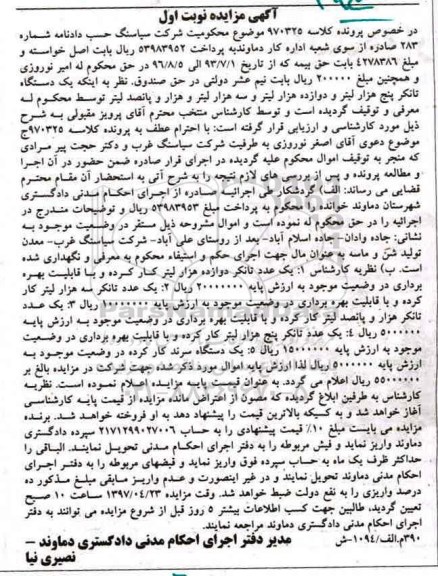 آگهی مزایده نوبت اول
در خصوص پرونده کلاسه ۹۷۰۳۲۵ موضوع محکومیت شرکت سیاسنگ حسب دادنامه شماره
۲۸۳ صادره از سوی شعبه اداره کار دماوندبه پرداخت ۵۳۹۸۳۹۵۲ ریال بابت اصل خواسته و
مبلغ ۴۲۷۸۳۸۶ بابت حق بیمه که از تاریخ ۹۳/۷/۱ الی ۹۶/۸/۵ در حق محکوم له امیر نوروزی
و همچنین مبلغ ۲۰۰۰۰۰ ریال بابت نیم عشر دولتی در حق صندوق. نظر به اینکه یک دستگاه
تانکر پنج هزار لیتر و دوازده هزار لیتر و سه هزار لیتر و هزار و پانصد لیتر توسط محکوم له
معرفی و توقیف گردیده است و توسط کارشناس منتخب محترم آقای پرویز مقبولی به شرح
ذیل مورد کارشناسی و ارزیابی قرار گرفته است: با احترام عطف به پرونده کلاسه ۹۷۰۳۲۵ج
موضوع دعوی آقای اصغر نوروزی به طرفیت شرکت سیاسنگ غرب و دکتر حجت پیر مرادی
که منجر به توقیف اموال محکوم علیه گردیده در اجرای قرار صادره ضمن حضور در آن اجرا
و مطالعه پرونده و پس از بررسی های لازم نتیجه را به شرح آتی به استحضار آن مقام محترم
قضایی می رساند: الف) گردشکار طی اجرائیه صادره از اجرای احکام مدنی دادگستری
شهرستان دماوند خوانده را محکوم به پرداخت مبلغ ۵۳۹۸۳۹۵۳ ریال و توضیحات مندرج در
اجرائیه را در حق محکوم له نموده است و اموال مشروحه ذیل مستقر در وضعیت موجود به
نشانی: جاده وادان- جاده اسلام آباد- بعد از روستای علی آباد- شرکت سیاسنگ غرب- معدن
تولید شن و ماسه به عنوان مال جهت اجرای حکم و استیفاء محکوم به معرفی و نگهداری شده
است. ب) نظریه کارشناس ۱: یک عدد تانکر دوازده هزار لیتر کار کرده و با قابلیت بهره
برداری در وضعیت موجود به ارزش پایه ۲۰۰۰۰۰۰۰ ریال ۲: یک عدد تانکر سه هزار لیتر کار
کرده و با قابلیت بهره برداری در وضعیت موجود به ارزش پایه ۱۰۰۰۰۰۰۰ ریال ۳: یک عدد
تانکر هزار و پانصد لیتر کار کرده و با قابلیت بهره برداری در وضعیت موجود به ارزش پایه
۵۰۰۰۰۰۰ ریال ۴: یک عدد تانکر پنج هزار لیتر کار کرده و با قابلیت بهره برداری در وضعیت
موجود به ارزش پایه ۱۵۰۰۰۰۰۰ ریال ۵: یک دستگاه سرند کار کرده در وضعیت موجود به
ارزش پایه ۵۰۰۰۰۰۰ ریال لذا ارزش پایه اموال مورد ذکر شده جهت شرکت در مزایده بالغ بر
۵۵۰۰۰۰۰۰ ریال اعلام می گردد. به عنوان قیمت پایه مزایده اعلام نموده است. نظریه
کارشناس به طرفین ابلاغ گردیده که مصون از اعتراض مانده مزایده از قیمت پایه کارشناسی
آغاز خواهد شد و به کسیکه بالاترین قیمت را پیشنهاد دهد به او فروخته خواهد شد. برنده
مزایده می بایست مبلغ ۱۰٪ قیمت پیشنهادی را به حساب ۲۱۷۱۲۹۹۰۲۷۰۰۶ سپرده دادگستری
دماوند واریز نماید و فیش مربوطه را به دفتر اجرای احکام مدنی تحویل نمایند. الباقی را
حداکثر ظرف یک ماه به حساب سپرده فوق واریز نماید و قبضهای مربوطه را به دفتر اجرای
احکام مدنی دماوند تحویل نمایند و در غیر اینصورت و عدم واریز مابقی مبلغ مذکور ده
درصد واریزی را به نفع دولت ضبط خواهد شد. وقت مزایده ۱۳۹۷/۰۴/۲۳ ساعت ۱۰ صبح
تعیین گردید، طالبین جهت کسب اطلاعات بیشتر ۵ روز قبل از شروع مزایده می توانند به دفتر
اجرای احکام مدنی دادگستری دماوند مراجعه نمایند.
۳۹۰م.الف/۱۰۹۴-ش
مدیر دفتر اجرای احکام مدنی دادگستری دماوند – نصیری نیا